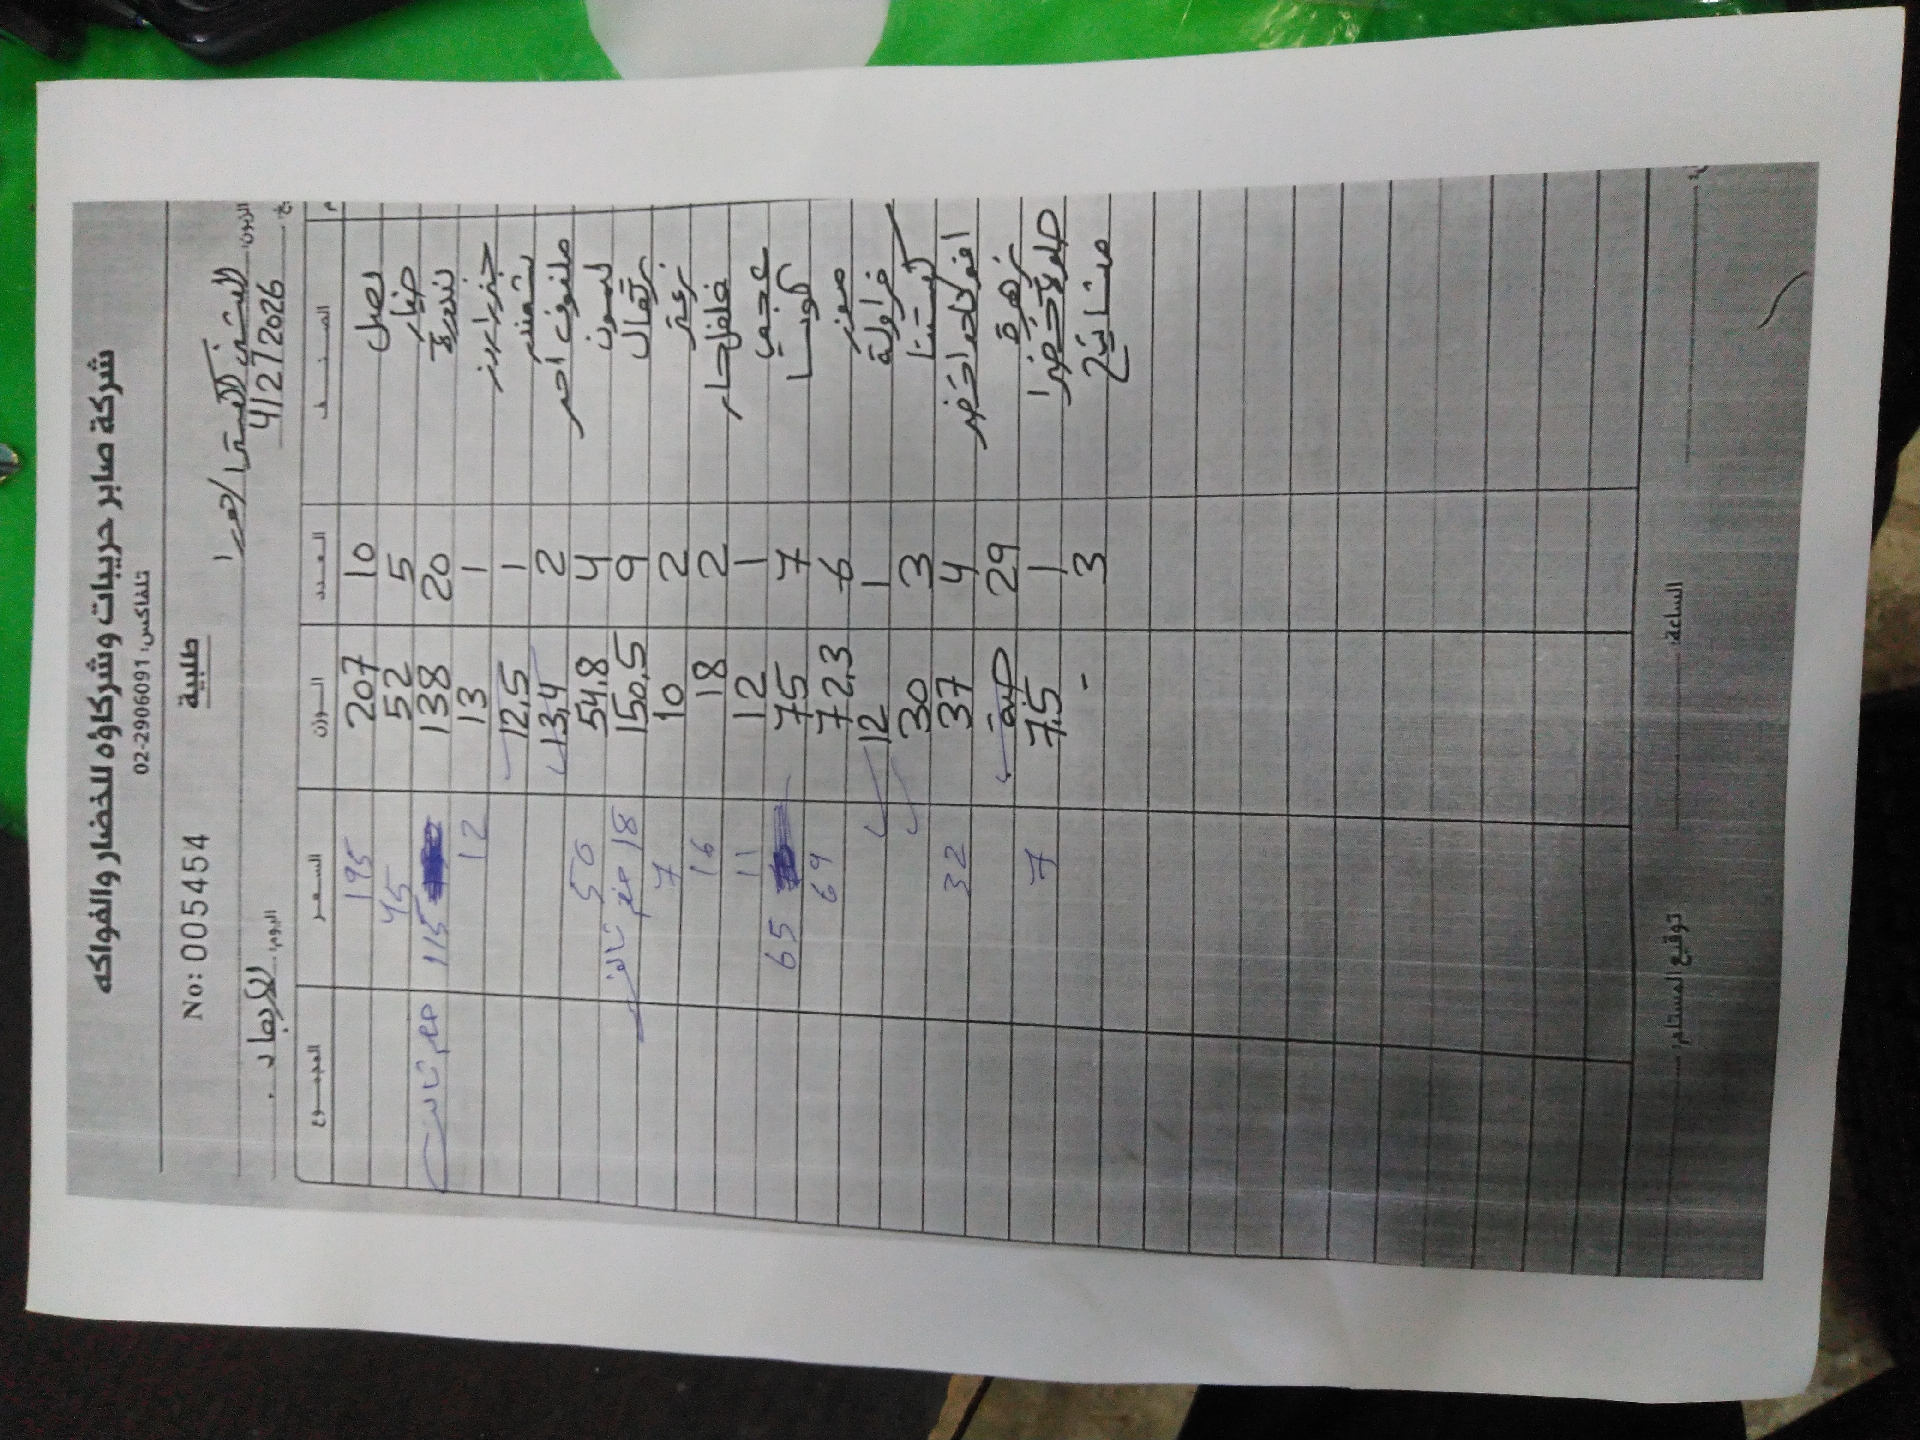 شركة صابر حريبات وشركاؤه للخضار والفواكه
تلفاكس: 02-2906091
No: 005454 طلبية
الزبون:
4/2/2026 اليوم: الأربعاء
الصنف العدد الوزن السعر المجموع
بصل 10 207 195
خيار 5 52 45
بندورة 20 138 115
جزر 1 13 12
شمندر 1 12,5
ملفوف احمر 2 13,4
ليمون 4 54,8 50
برتقال 9 150,5
زعتر 2 10 7
فلفل حار 2 18 16
عجمي 1 12 11
كوسا 7 75 65
موز 6 72,3 69
فراولة 1 12
كستنا 3 30
اخضر 4 37 32
زهرة 29 حبة
1 7,5 7
3 -
الساعة: توقيع المستلم: